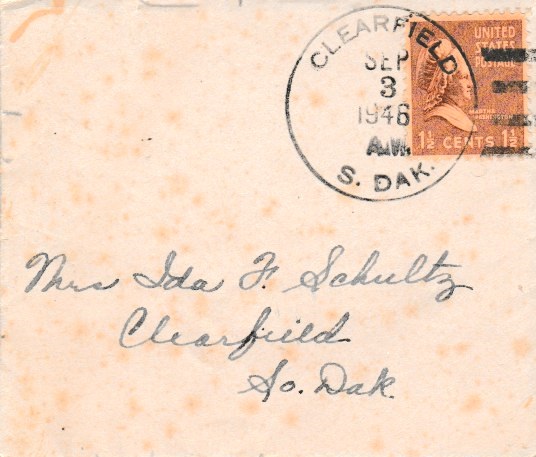 CLEARFIELD
SEP
3
1946
A.M.
S. DAK.
UNITED
STATES
POSTAGE
MARTHA
WASHINGTON
1½ CENTS 1½
Mrs Ida F. Schultz
Clearfield
So. Dak.